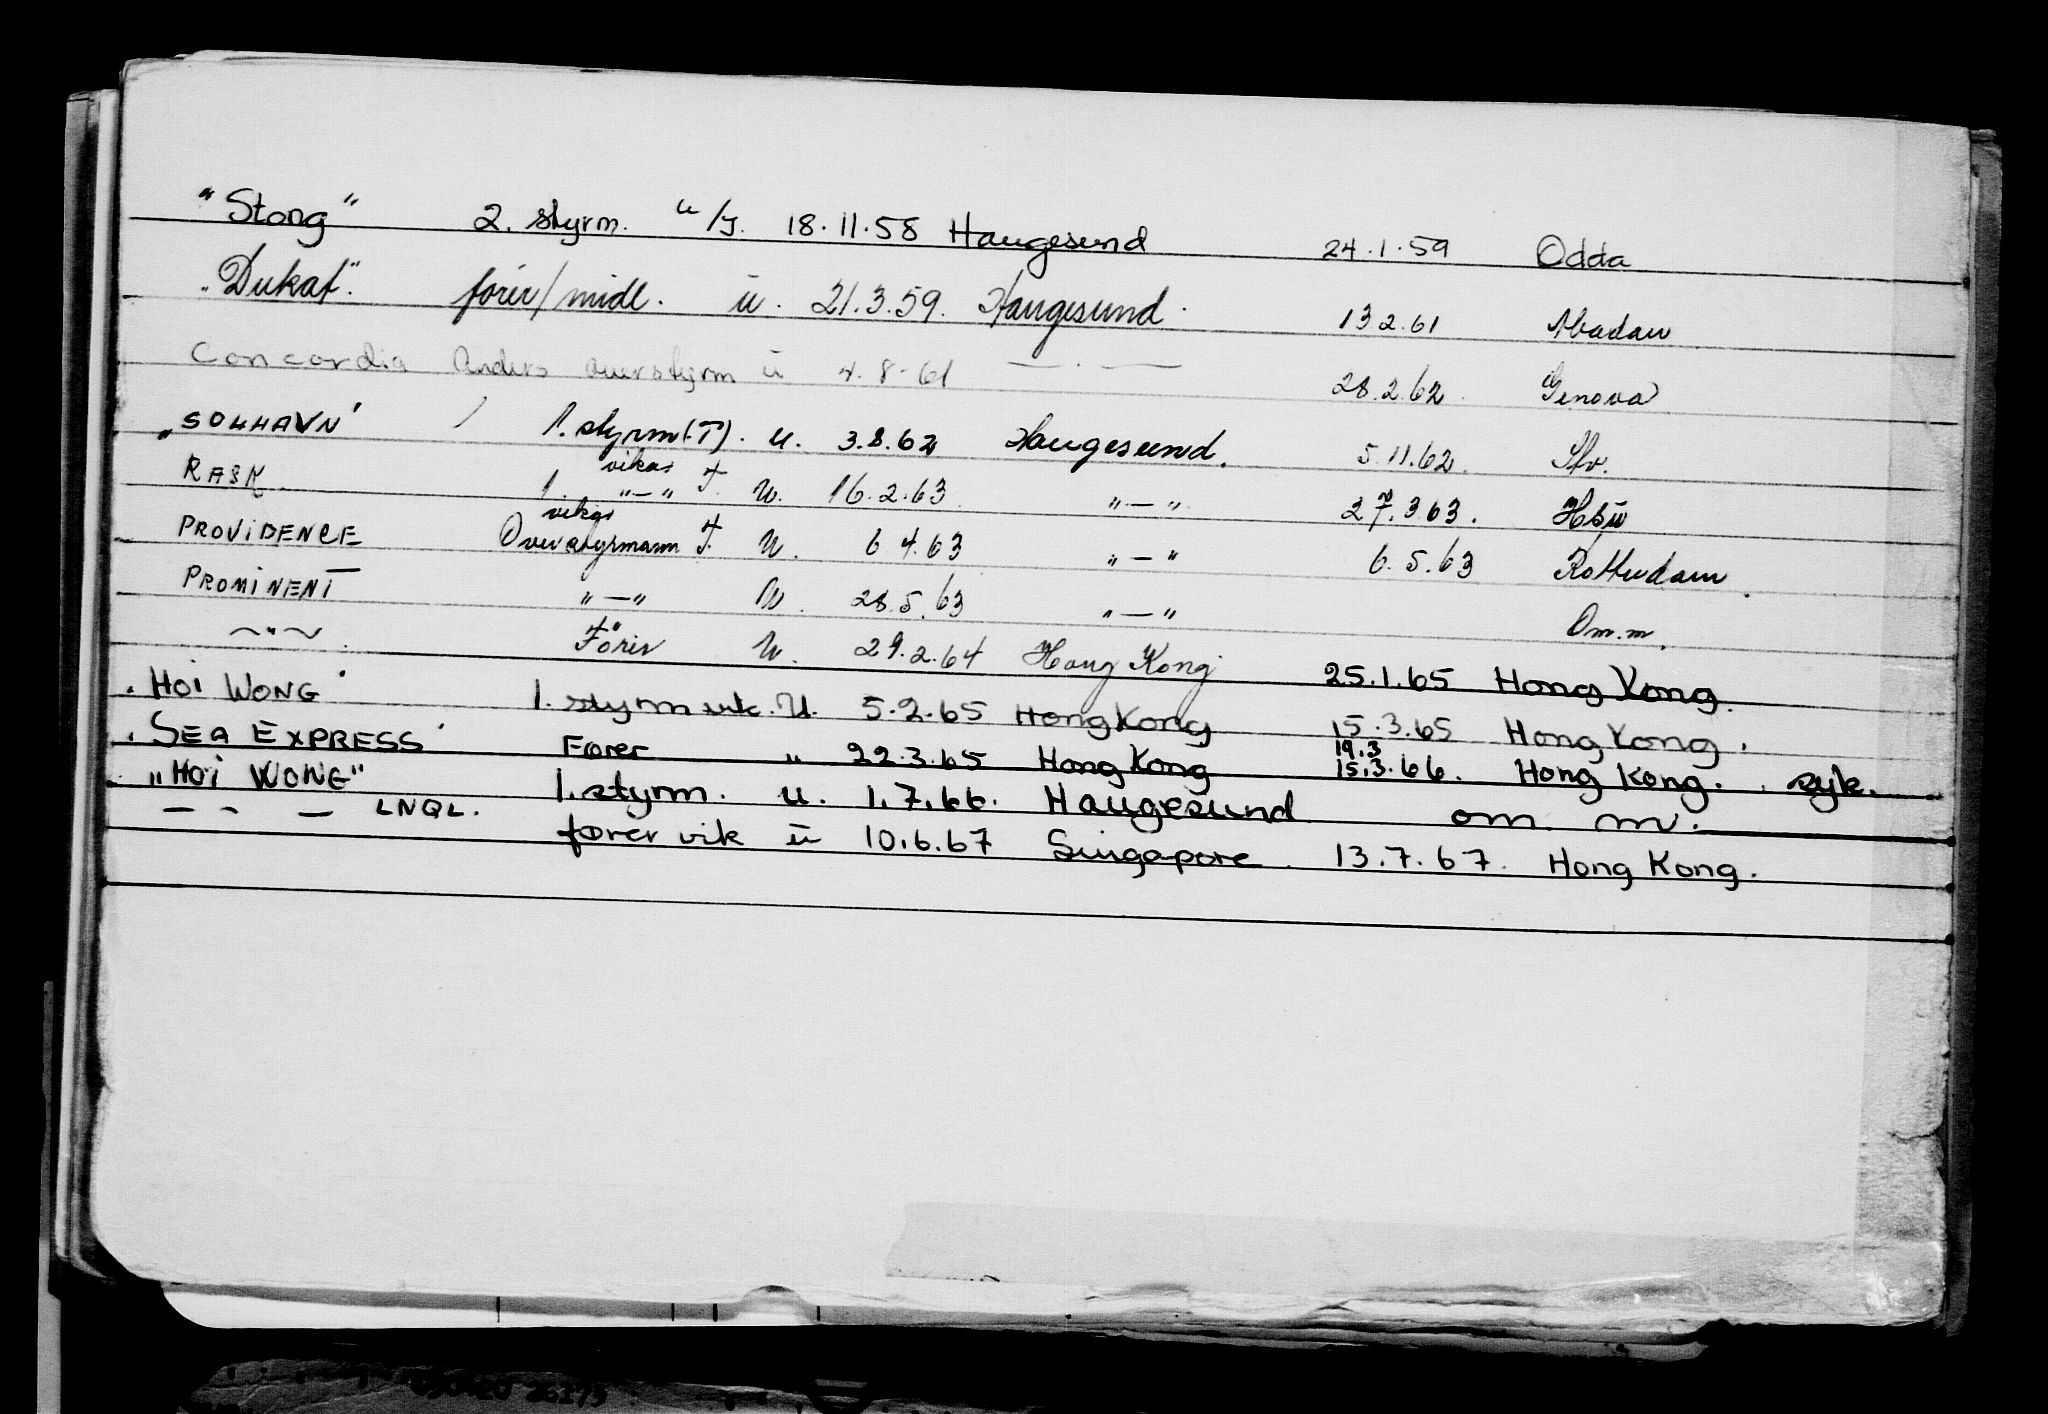 "Stong" 2. styrm. u/J. 18.11.58 Haugesund 24.1.59 Odda
"Dukat". fører/midl. u. 21.3.59. Haugesund. 13 2.61 Abadan
Concordia Anders overstyrm u 4.8.61 — . — 28.2.62. Genova
"SOLHAVN" 1. styrm(T). u. 3.8.62 Haugesund. 5.11.62. Stv.
RASK. 1. vikar "—" F. U. 16.2.63 "—" 27.3.63.
PROVIDENCE vikar Overstyrmann F. U. 6 4.63 "—" 6.5.63 Rotterdam.
PROMINENT "—" U. 28.5.63 "—" Om.m.
—"— Förer U. 29.2.64 Hong Kong 25.1.65 Hong Kong.
"HOI WONG" 1. styrm vik. U. 5.2.65 Hong Kong 15.3.65 Hong Kong.
"SEA EXPRESS" Fører " 22.3.65 Hong Kong 19.3 15.3.66. Hong Kong. syk.
"HOI WONG" 1. styrm. u. 1.7.66. Haugesund om m.
— - — LNQL. fører vik u 10.6.67 Singapore. 13.7.67. Hong Kong.